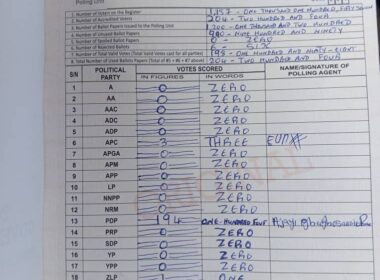 Polling Unit
1. Number of Voters on the Register
2. Number of Accredited Voters 204 - TWO HUNDRED AND FOUR
3. Number of Ballot Papers Issued to the Polling Unit
4. Number of Unused Ballot Papers
5. Number of Spoiled Ballot Papers 0 - ZERO
6. Number of Rejected Ballots 6 SIX
7. Number of Total Valid Votes (Total Valid Votes cast for all parties) 198 - ONE HUNDRED AND NINETY-EIGHT
8. Total Number of Used Ballot Papers (Total of #5 + #6 + #7 above) 204 - TWO HUNDRED AND FOUR
S/N POLITICAL PARTY VOTES SCORED NAME/SIGNATURE OF POLLING AGENT
IN FIGURES IN WORDS
1 A 0 ZERO
2 AA 0 ZERO
3 AAC 0 ZERO
4 ADC 0 ZERO
5 ADP 0 ZERO
6 APC 3 THREE
7 APGA 0 ZERO
8 APM 0 ZERO
9 APP 0 ZERO
10 LP 0 ZERO
11 NNPP 0 ZERO
12 NRM 0 ZERO
13 PDP 194
14 PRP 0 ZERO
15 SDP 0 ZERO
16 YP 0 ZERO
17 YPP 0 ZERO
18 ZLP 1 ONE
ORIGINAL